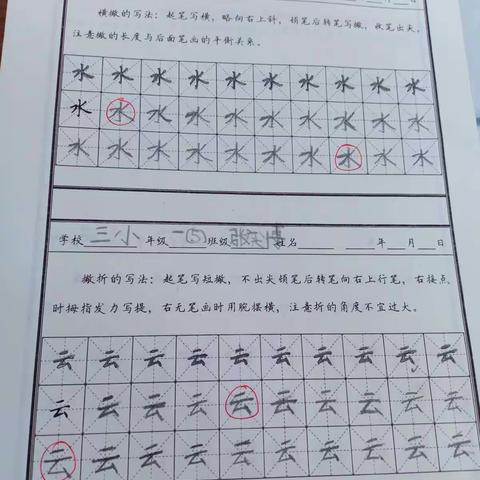 年 月 日
横撇的写法：起笔写横，略向右上斜，顿笔后转笔写撇，收笔出尖。
注意撇的长度与后面笔画的平衡关系。
水 水 水 水 水 水 水 水 水
水 水 水 水 水 水 水 水 水
水 水 水 水 水 水 水 水 水
学校 三小 年级 一(5) 班级 姓名 年 月 日
撇折的写法：起笔写短撇，不出尖顿笔后转笔向右上行笔，右接点
时拇指发力写提，右无笔画时用腕摆横，注意折的角度不宜过大。
云 云 云 云 云 云 云 云 云
云 云 云 云 云 云 云 云 云
云 云 云 云 云 云 云 云 云